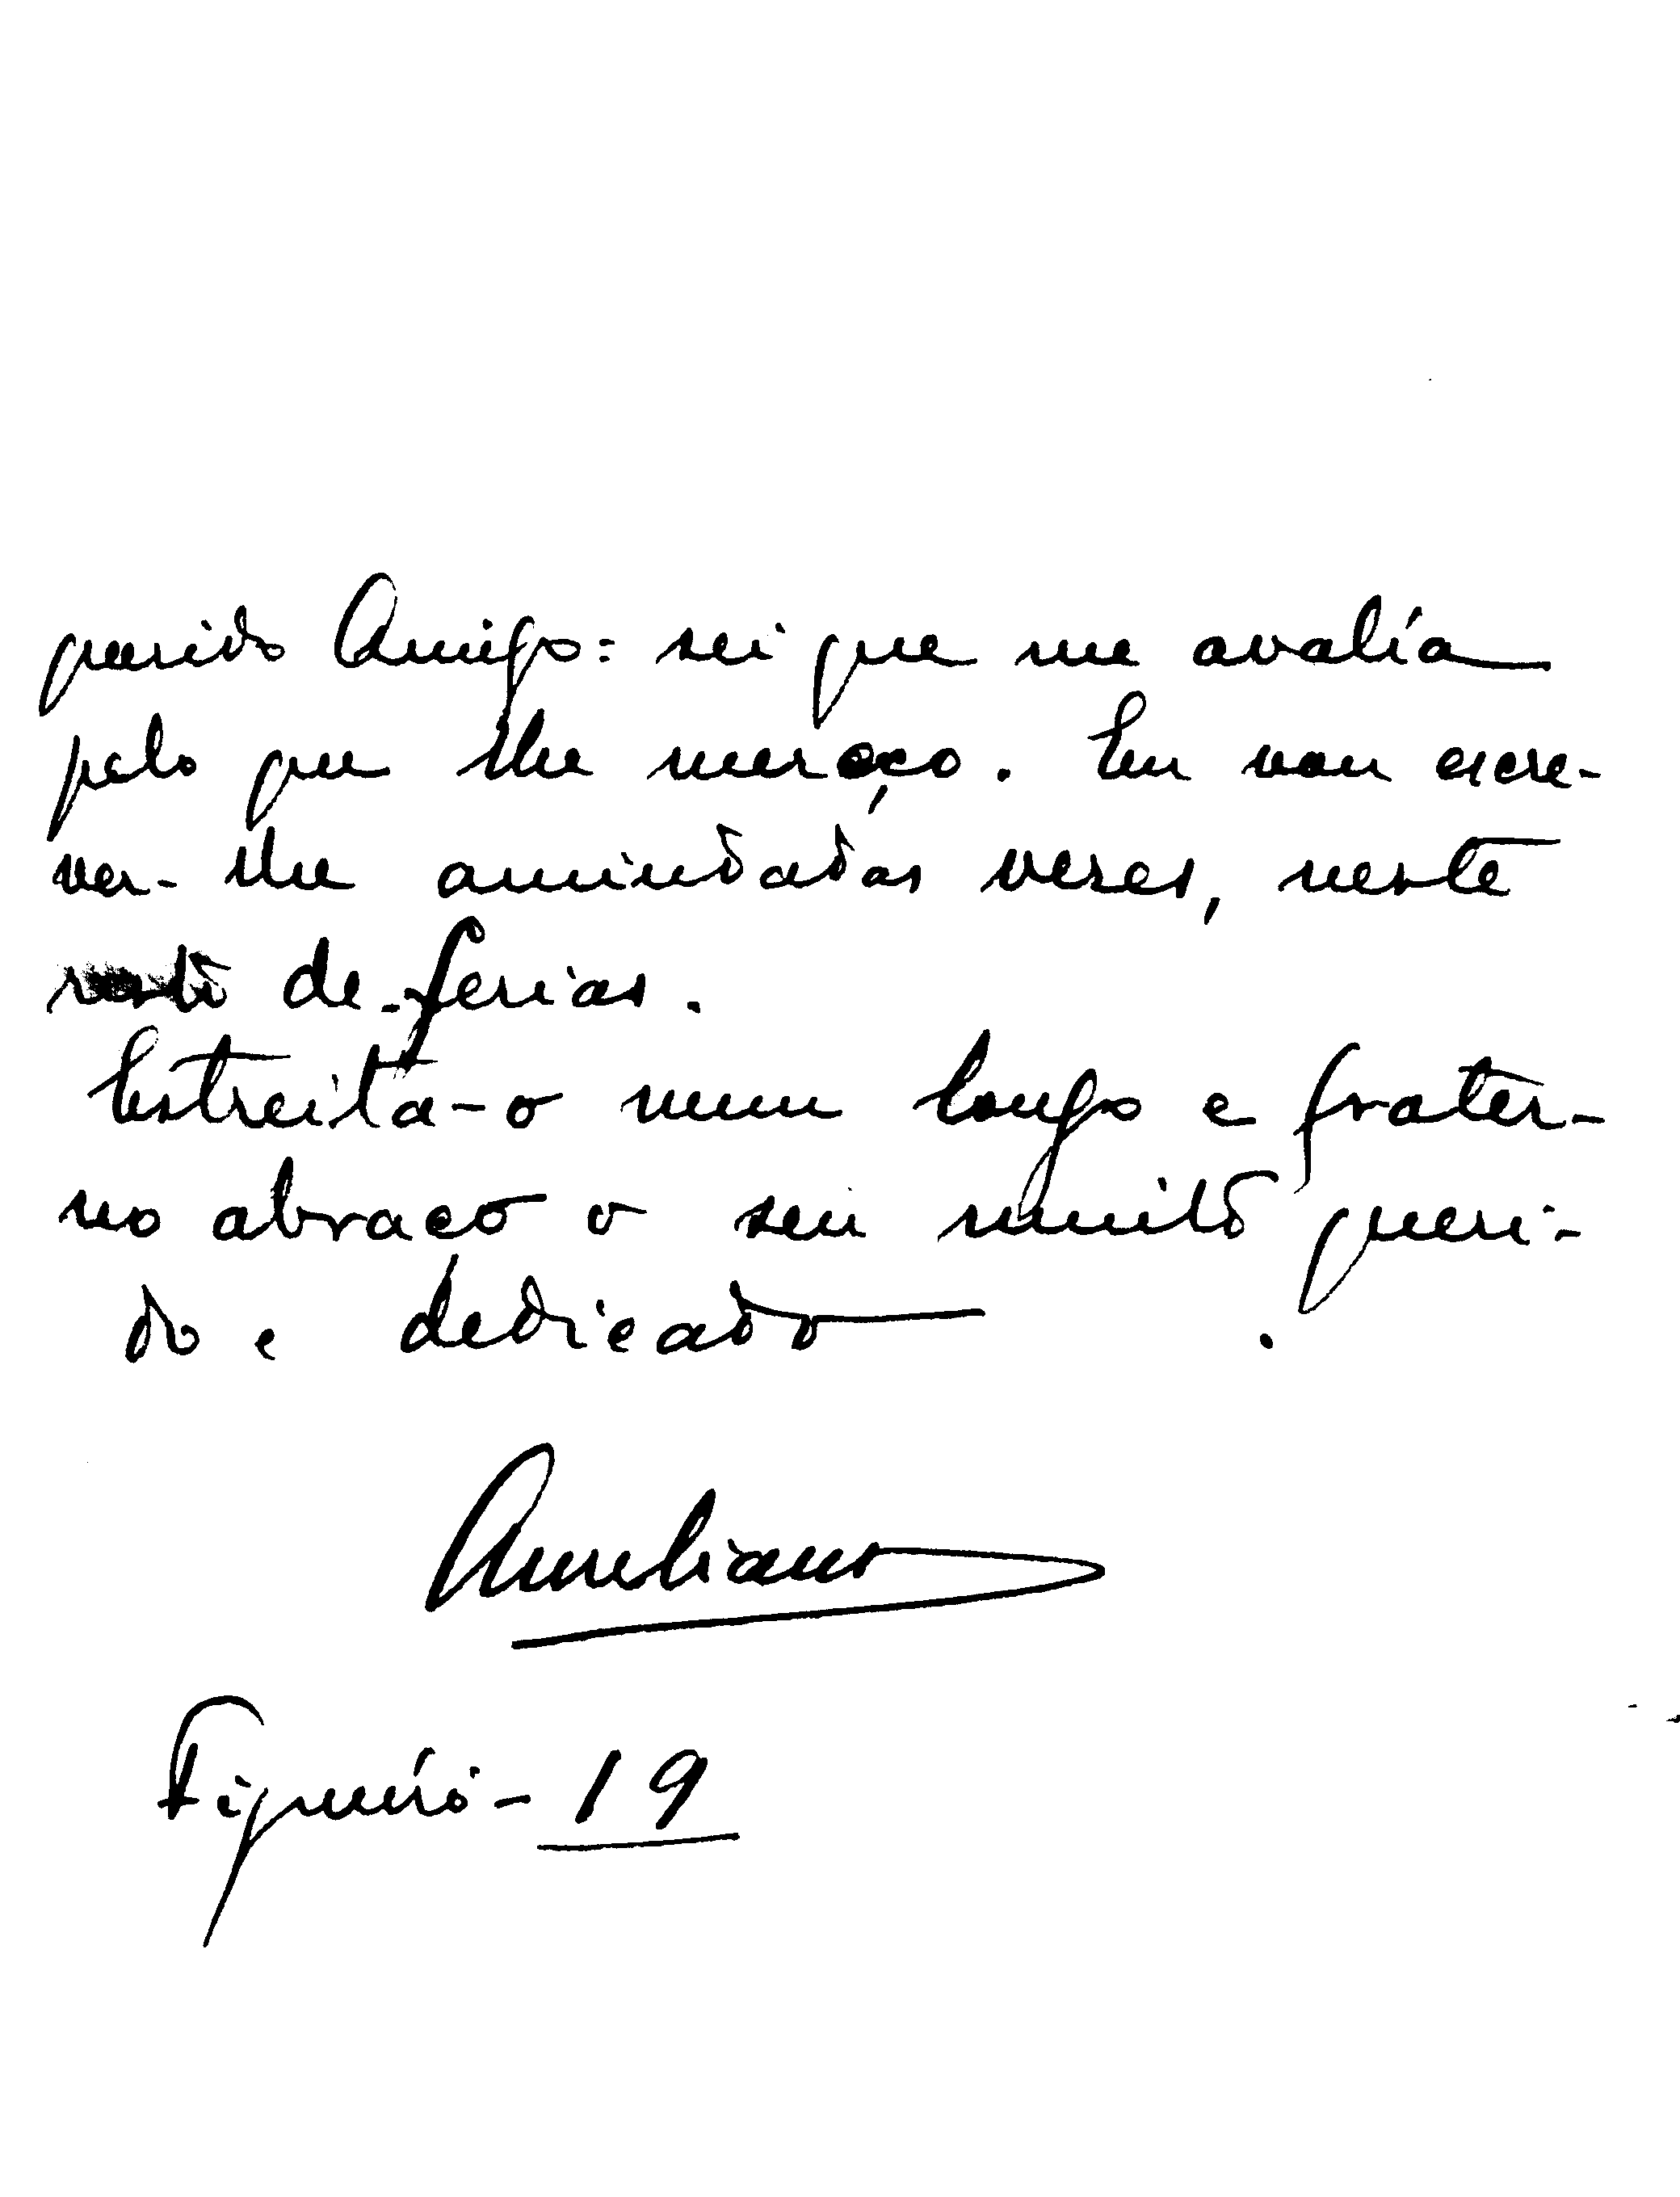 querido Amigo: sei que me avalía
pelo que lhe merêço. Eu vou escre-
ver-lhe amiudadas vezes, neste
resto de ferias.
Estreita-o num longo e frater-
no abraço o seu muito queri-
do e dedicado
Aureliano
Figueiró - 19